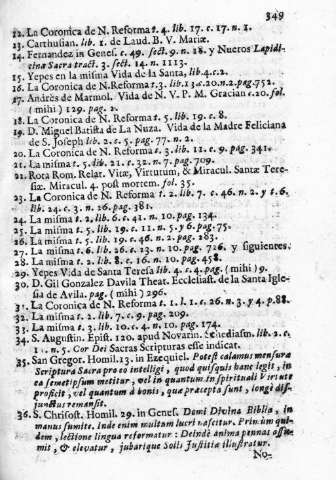 349
12. La Coronica de N. Reforma t. 4. lib. 17. c. 17. n. 1.
13. Carthusian. lib. 1. de Laud. B. V. Mariæ.
14. Fernandez in Genes. c. 49. sect. 9. n. 18. y Nueros Lapidi-
cina Sacra tract. 3. sect. 14. n. 1113.
15. Yepes en la misma Vida de la Santa, lib. 4. c. 2.
16. La Coronica de N. Reforma t. 3. lib. 13. c. 20. n. 2. pag. 752.
17. Andrès de Marmol. Vida de N. V. P. M. Gracian c. 10. fol.
(mihi) 129. pag. 2.
18. La Coronica de N. Reforma t. 5. lib. 19. c. 8.
19. D. Miguel Batista de La Nuza. Vida de la Madre Feliciana
de S. Joseph lib. 2. c. 5. pag. 77. n. 2.
20. La Coronica de N. Reforma t. 3. lib. 11. c. 9. pag. 341.
21. La misma t. 5. lib. 21. c. 32. n. 7. pag. 709.
Rota Rom. Relat. Vitæ, Virtutum, & Miracul. Santæ Tere-
siæ. Miracul. 4. post mortem. fol. 35.
23. La Coronica de N. Reforma t. 2. lib. 7. c. 46. n. 2. y t. 6.
lib. 24. c. 3. n. 16. pag. 381.
24. La misma t. 2. lib. 6. c. 41. n. 10. pag. 134.
25. La misma t. 5. lib. 19. c. 11. n. 5. y 6. pag. 75.
26. La misma t. 5. lib. 19. c. 46. n. 2. pag. 263.
27. La misma t. 6. lib. 26. c. 23. n. 10. pag. 726. y siguientes.
28. La misma t. 2. lib. 8. c. 16. n. 10. pag. 458.
29. Yepes Vida de Santa Teresa lib. 4. c. 4. pag. (mihi) 9.
30. D. Gil Gonzalez Davila Theat. Ecclesiast. de la Santa Igle-
sia de Avila. pag. (mihi) 296.
31. La Coronica de N. Reforma t. 1. l. 1. c. 26. n. 3. y 4. p. 88.
32. La misma t. 2. lib. 7. c. 9. pag. 209.
33. La misma t. 3. lib. 10. c. 4. n. 10. pag. 174.
34. S. Augustin. Epist. 120. apud Novarin. lib. 2. c.
1. n. 5. Cor Dei Sacras Scripturas esse indicat.
35. San Gregor. Homil. 13. in Ezequiel. Potest calamus mensuræ
Scriptura Sacra pro eo intelligi, quod quisquis hanc legit, in
ea semetipsum metitur, vel in quantum in spirituali Virtute
proficit, vel quantum à bonis, quæ præcepta sunt, longè dis-
junctus remansit.
36. S. Chrisost. Homil. 29. in Genes. Domi Divina Biblia, in
manus sumite. Inde enim multam lucri nascitur. Primùm qui-
dem, lectione lingua reformatur: Deindè anima pennas assu-
mit, & elevatur, jubarique Solis Justitiæ illustratur.
No-